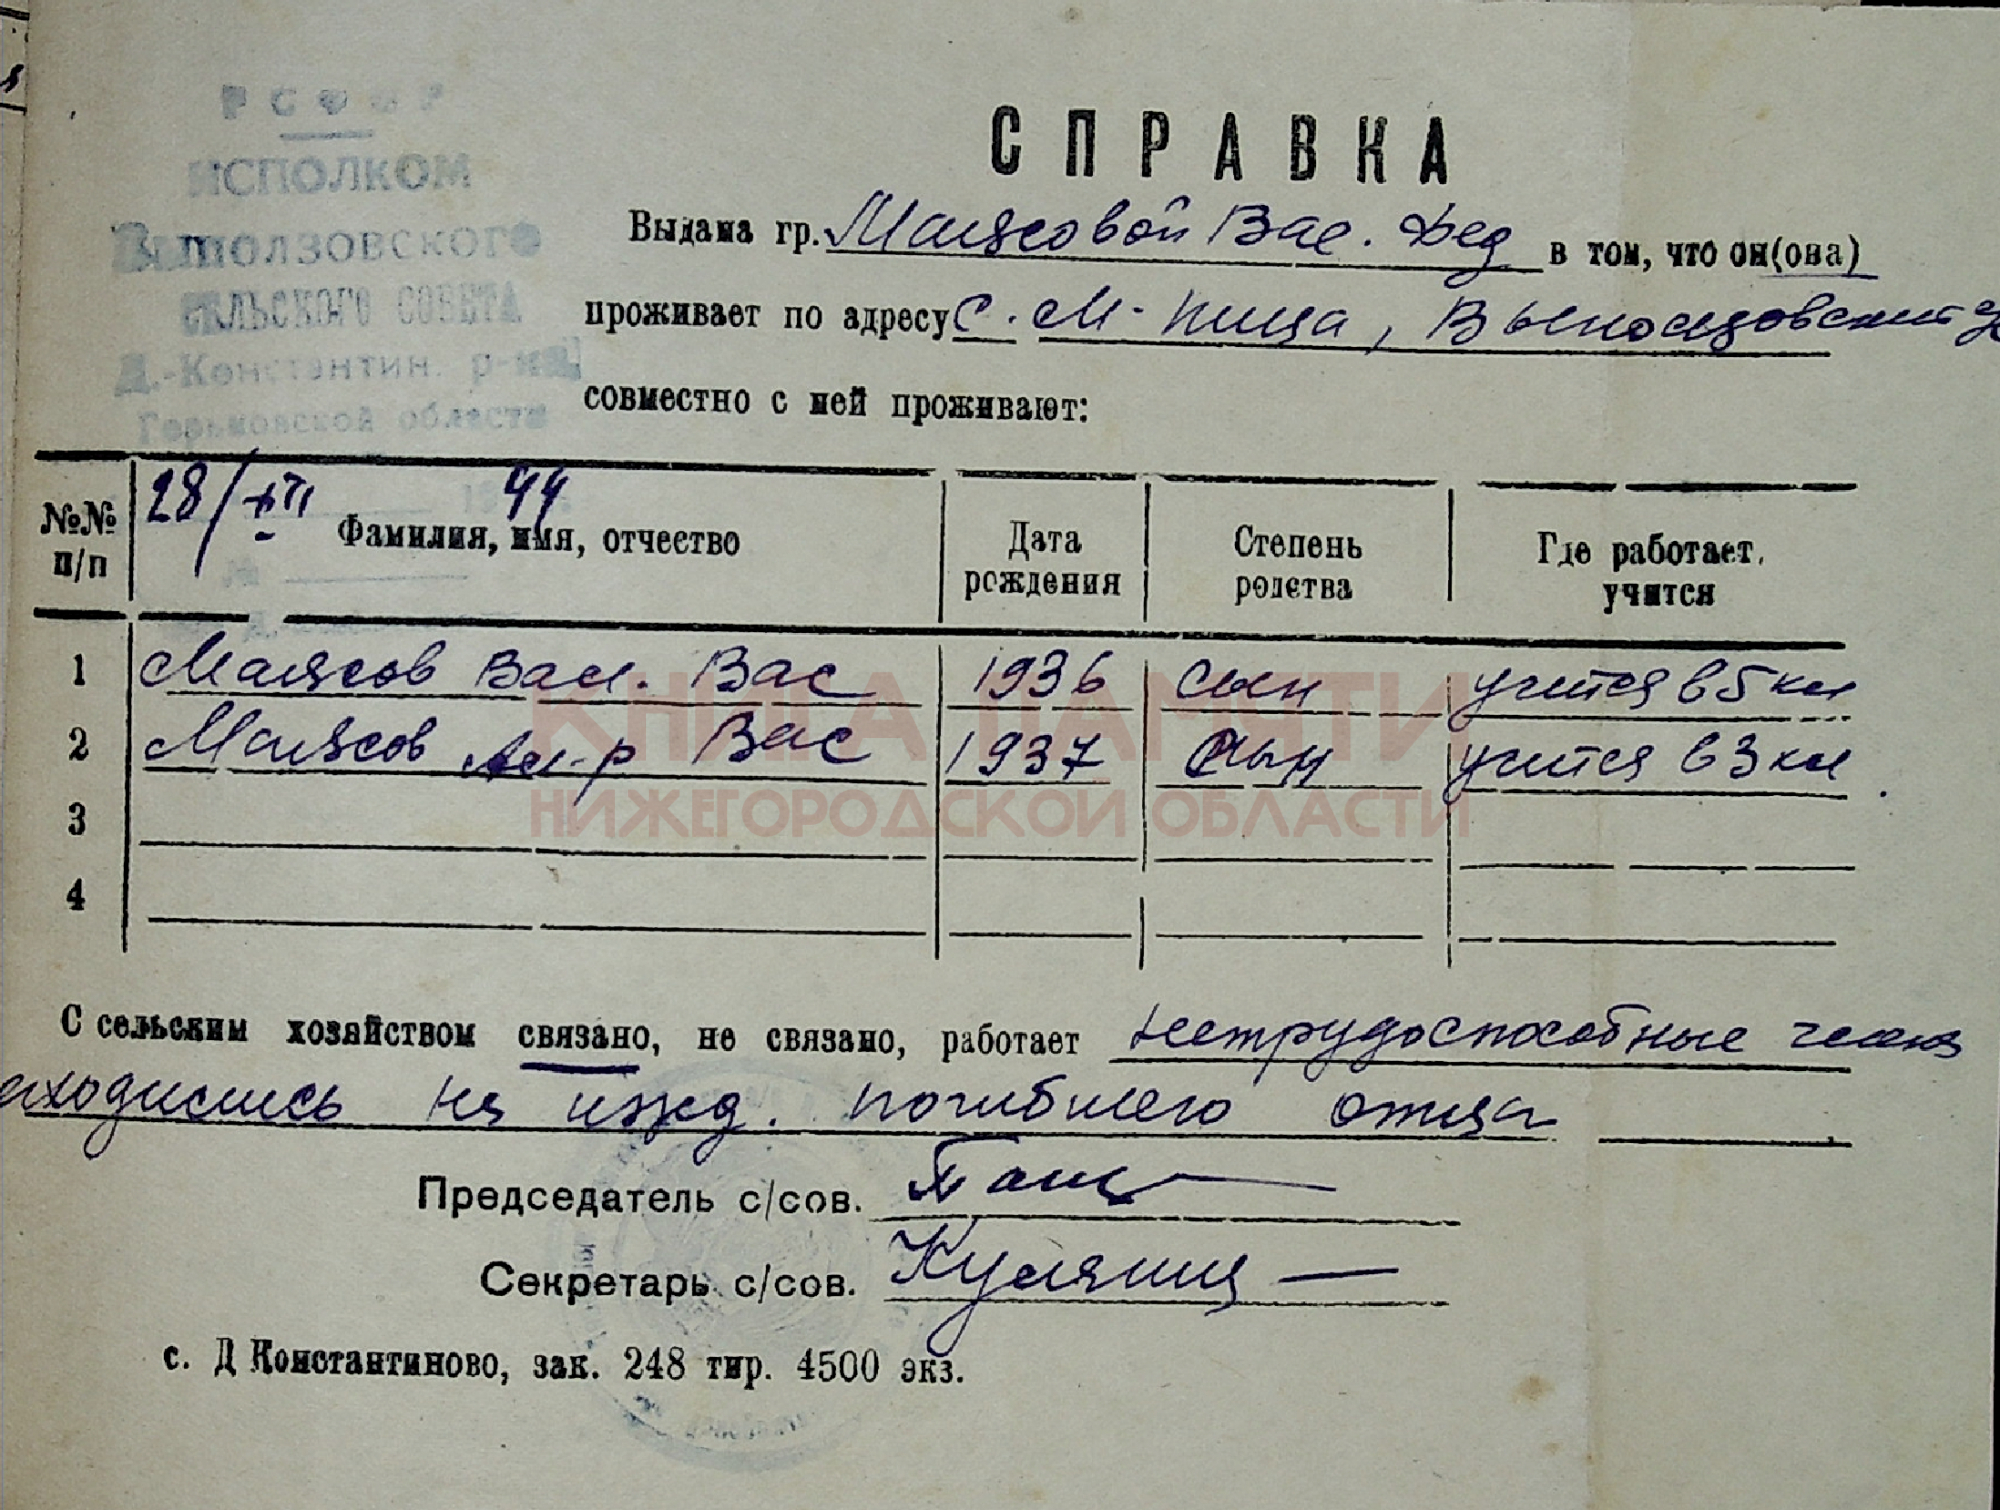 РСФСР
ИСПОЛКОМ
Выползовского
СЕЛЬСКОГО СОВЕТА
Д.-Константин. р-на
Горьковской области
СПРАВКА
Выдана гр. Малясовой Вас. Фед в том, что он(она)
проживает по адресу с. М-Пица, Выползовский
совместно с ней проживают:
28/XII 44
№№ п/п Фамилия, имя, отчество Дата рождения Степень родства Где работает, учится
1 Малясов Вас. Вас 1936 сын учится в 5 кл
2 Малясов Ал-р Вас 1937 сын учится в 3 кл.
3
4
КНИГА ПАМЯТИ
НИЖЕГОРОДСКОЙ ОБЛАСТИ
С сельским хозяйством связано, не связано, работает нетрудоспособные члены
находились на ижд. погибшего отца
Председатель с/сов.
Секретарь с/сов.
с. Д Константиново, зак. 248 тир. 4500 экз.